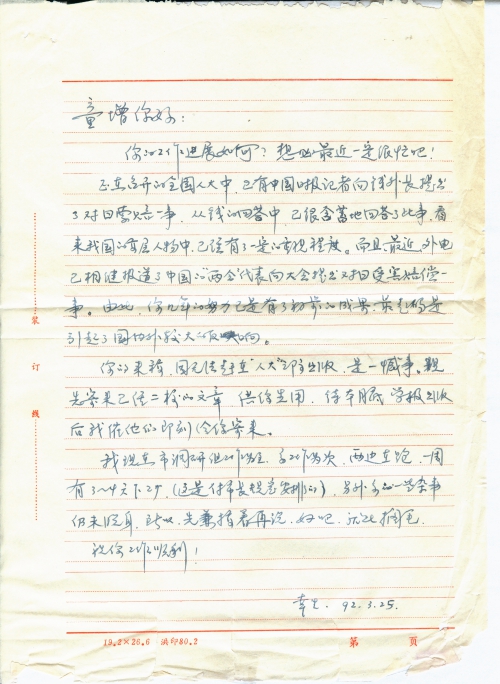 童增你好:
你的工作进展如何?想必最近一定很忙吧!
正在召开的全国人大中,已有中国时报记者向钱外长提出
了对日索赔一事,从钱的回答中,已很含蓄地回答了此事,看
来我国的高层人物中,已经有了一定的重视程度。而且最近,外电
已相继报道了中国的“两会”代表向大会提出对日受害赔偿一
事。由此,你几年的努力已是有了初步的成果,最起码是
引起了国内外较大的反响。
你的来稿,因无法在“人大”印出版,是一憾事。现
先寄来已经二校的文章,供你先用,待本期学报出版
后我催他们即刻给你寄来。
我现在市调研组工作,两边在跑,一周
有3～4天下去,(这是付市长提名安排的),另外手头一些杂事
仍未脱身,所以,先兼搞着再说,好吧,就此搁笔。
祝你工作顺利!
幸生. 92.3.25.
装
订
线
19.2×26.6 洪印80.2
第 页